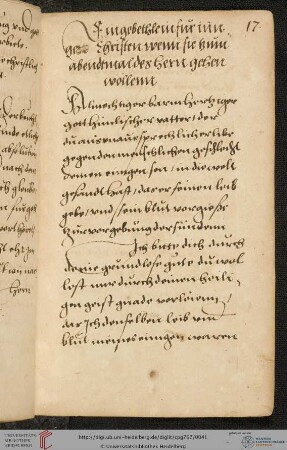 17.
Ein gebethlein für jun¬
ge Christen wenn sie zum
abendtmal des Hern gehen
wollenn
Almechtiger barmhertziger
gott himlischer vatter, der
du aus unaussprechlicher liebe
gegen dem menschlichen geschlecht
deinen einigen son, in die welt
gesandt hast, das er seinen leib
gebe, und sein blut vergiesse
zur vergebung der sünden
Ich bitte dich durch
deine grundlose güte du wol
lest mir durch deinen heili
gen geist gnade verleienn,
das Ich denselben leib und
blut meines einigen waren
http://digi.ub.uni-heidelberg.de/diglit/cpg757/0041
© Universitätsbibliothek Heidelberg
UNIVERSITÄTS-
BIBLIOTHEK
HEIDELBERG